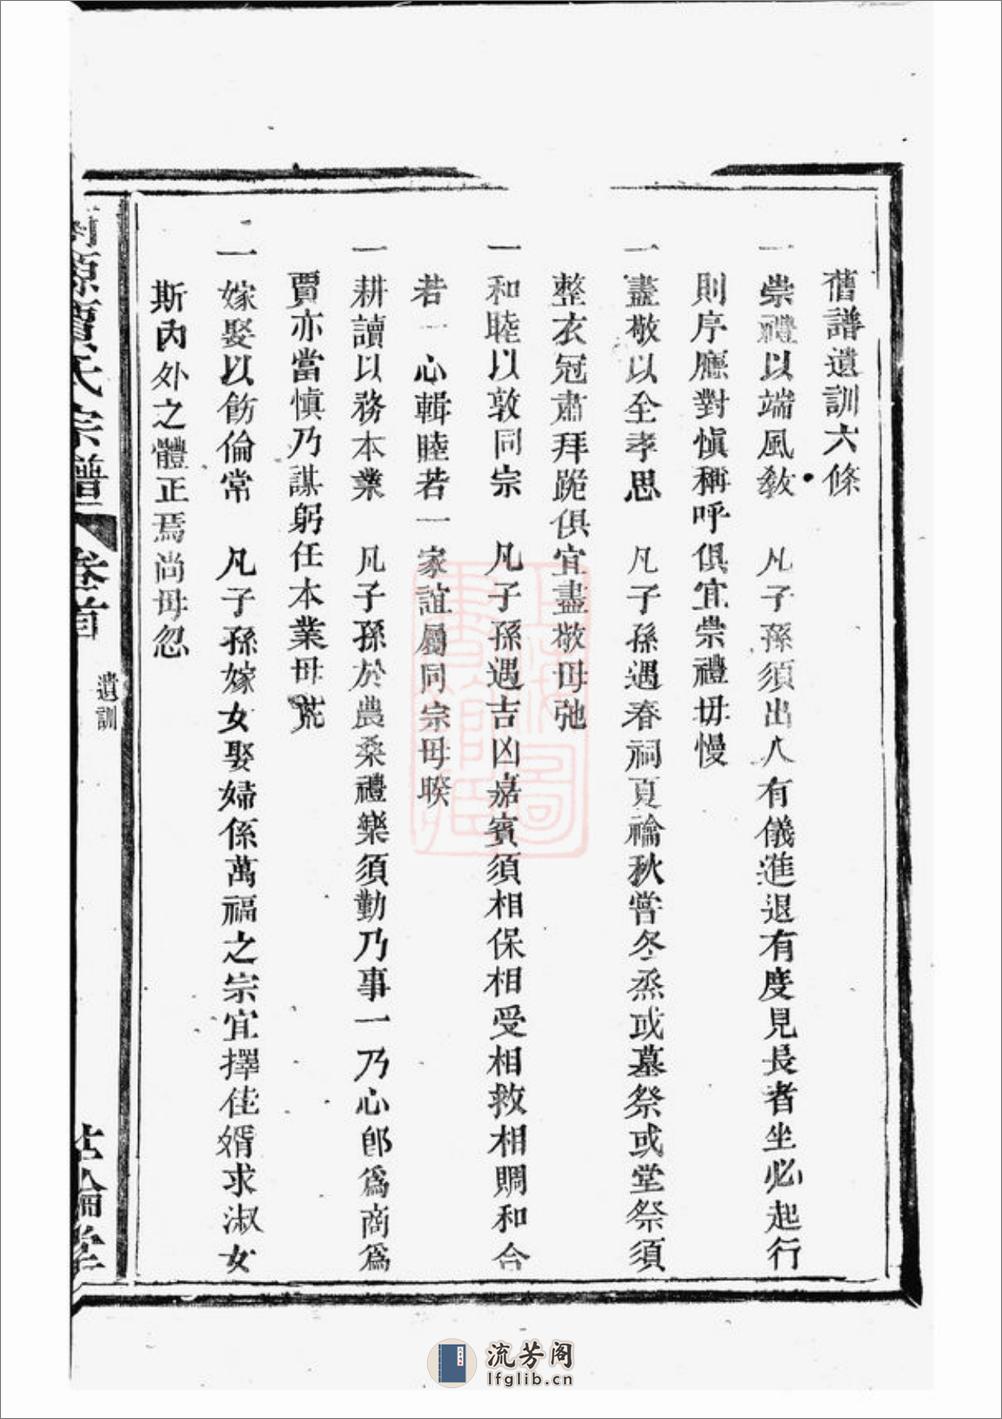 舊譜遺訓六條
一崇禮以端風敎　凡子孫須出入有儀進退有度見長者坐必起行
則序應對愼稱呼俱宜崇禮毋慢
一盡敬以全孝思　凡子孫遇春祠夏禴秋嘗冬烝或墓祭或堂祭須
整衣冠肅拜跪俱宜盡敬毋弛
一和睦以敦同宗　凡子孫遇吉凶嘉賓須相保相受相救相賙和合
若一心輯睦若一家誼屬同宗毋睽
一耕讀以務本業　凡子孫於農桑禮樂須勤乃事一乃心卽爲商爲
賈亦當愼乃謀躬任本業毋荒
一嫁娶以飭倫常　凡子孫嫁女娶婦係萬福之宗宜擇佳婿求淑女
斯內外之體正焉尚毋忽
源賈氏宗譜
卷首
遺訓
流芳阁
lfglib.cn